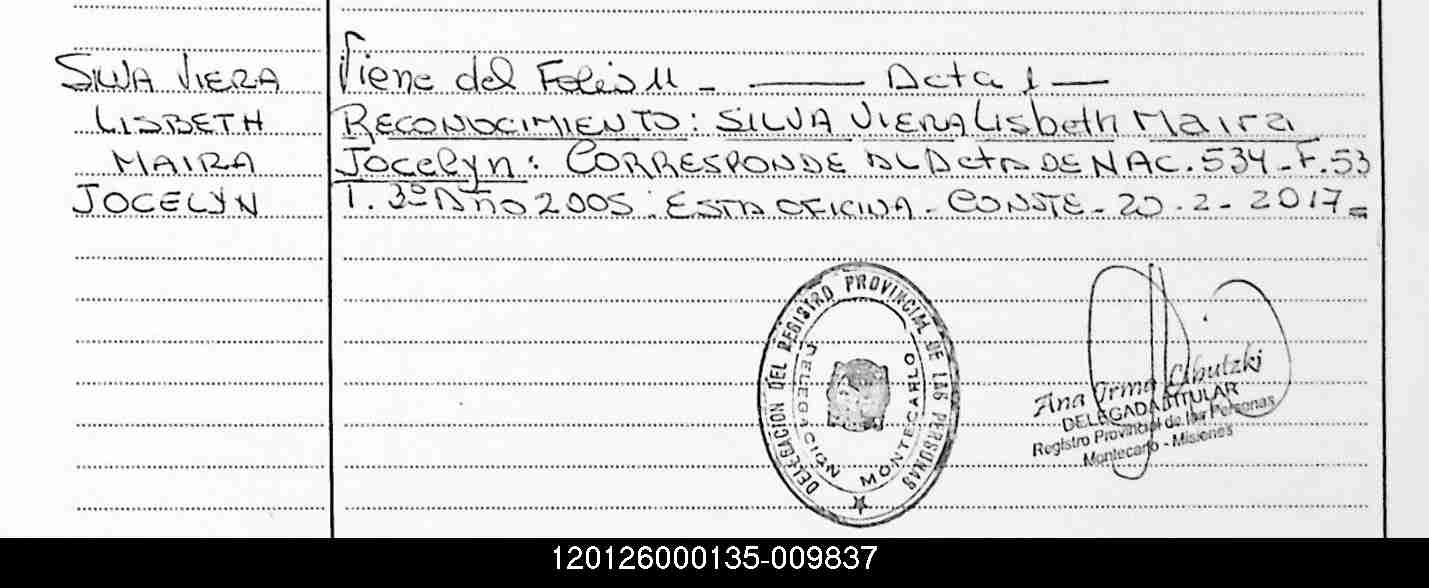 SILVA VIERA
LISBETH
MAIRA
JOCELYN
Viene del Folio 11 - —— Acta 1 —
RECONOCIMIENTO: SILVA VIERA Lisbeth Maira
Jocelyn: CORRESPONDE AL Acta DE NAC. 534 - F. 53
T. 3º Año 2005. ESTA OFICINA - CONSTE - 20 - 2 - 2017 =
DELEGACION DEL REGISTRO PROVINCIAL DE LAS PERSONAS
DELEGACION MONTECARLO
Ana Irma Cibutzki
DELEGADA TITULAR
Registro Provincial de las Personas
Montecarlo - Misiones
120126000135-009837